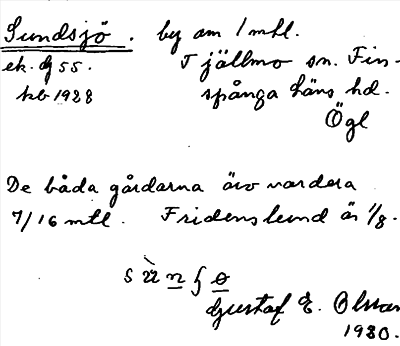 Sundsjö. by om 1 mtl.
ek. bl 55. Tjällmo sn. Fin-
kb 1928 spånga läns hd.
Ögl
De båda gårdarna äro vardera
7/16 mtl. Fridenslund är 1/8.
Gustaf E. Olsson
1930.